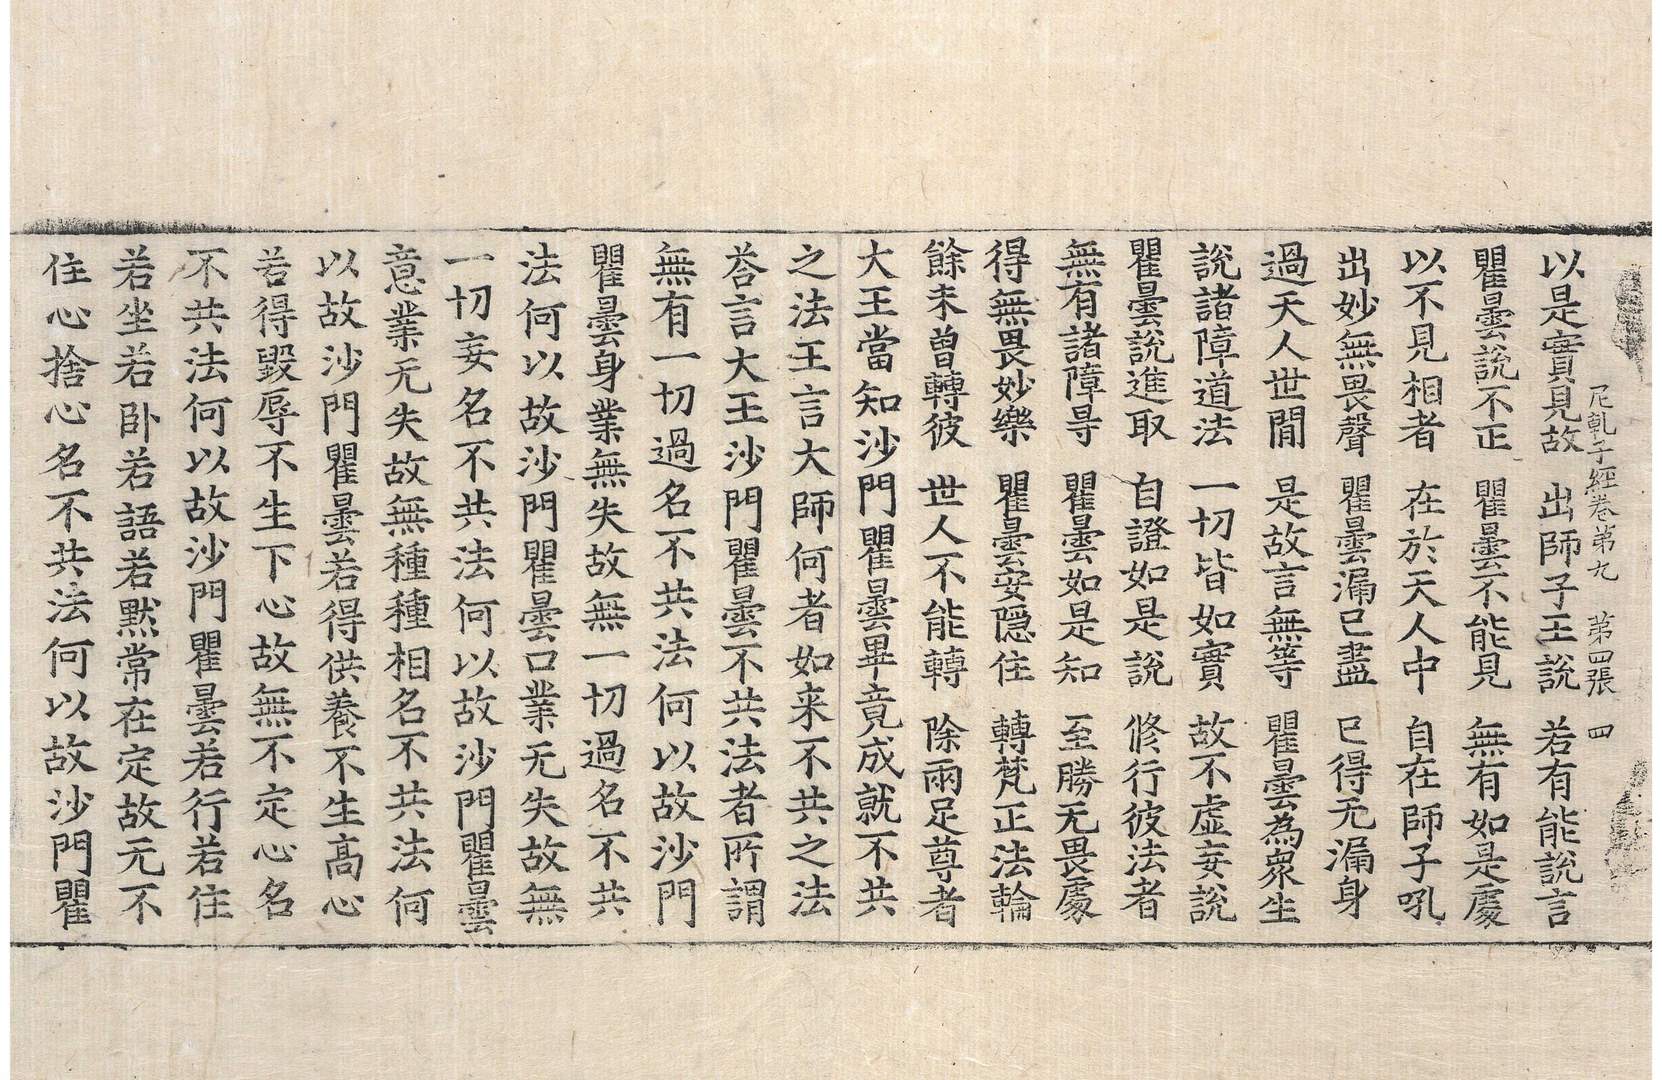 尼乹子經卷第九 第四張 四
以是實見故 出師子王說 若有能說言
瞿曇說不正 瞿曇不能見 無有如是處
以不見相者 在於天人中 自在師子吼
出妙無畏聲 瞿曇漏已盡 已得无漏身
過天人世間 是故言無等 瞿曇為衆生
說諸障道法 一切皆如實 故不虛妄說
瞿曇說進取 自證如是說 修行彼法者
無有諸障㝵 瞿曇如是知 至勝无畏處
得無畏妙樂 瞿曇安隱住 轉梵正法輪
餘未曾轉彼 世人不能轉 除兩足尊者
大王當知沙門瞿曇畢竟成就不共
之法王言大師何者如来不共之法
荅言大王沙門瞿曇不共法者所謂
無有一切過名不共法何以故沙門
瞿曇身業無失故無一切過名不共
法何以故沙門瞿曇口業无失故無
一切妄名不共法何以故沙門瞿曇
意業无失故無種種相名不共法何
以故沙門瞿曇若得供養不生高心
若得毀辱不生下心故無不定心名
不共法何以故沙門瞿曇若行若住
若坐若卧若語若默常在定故无不
住心捨心名不共法何以故沙門瞿